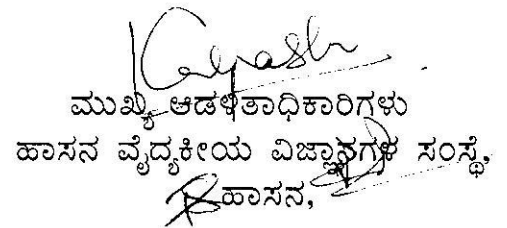 ಮುಖ್ಯ ಆಡಳಿತಾಧಿಕಾರಿಗಳು
ಹಾಸನ ವೈದ್ಯಕೀಯ ವಿಜ್ಞಾನಗಳ ಸಂಸ್ಥೆ,
ಹಾಸನ,